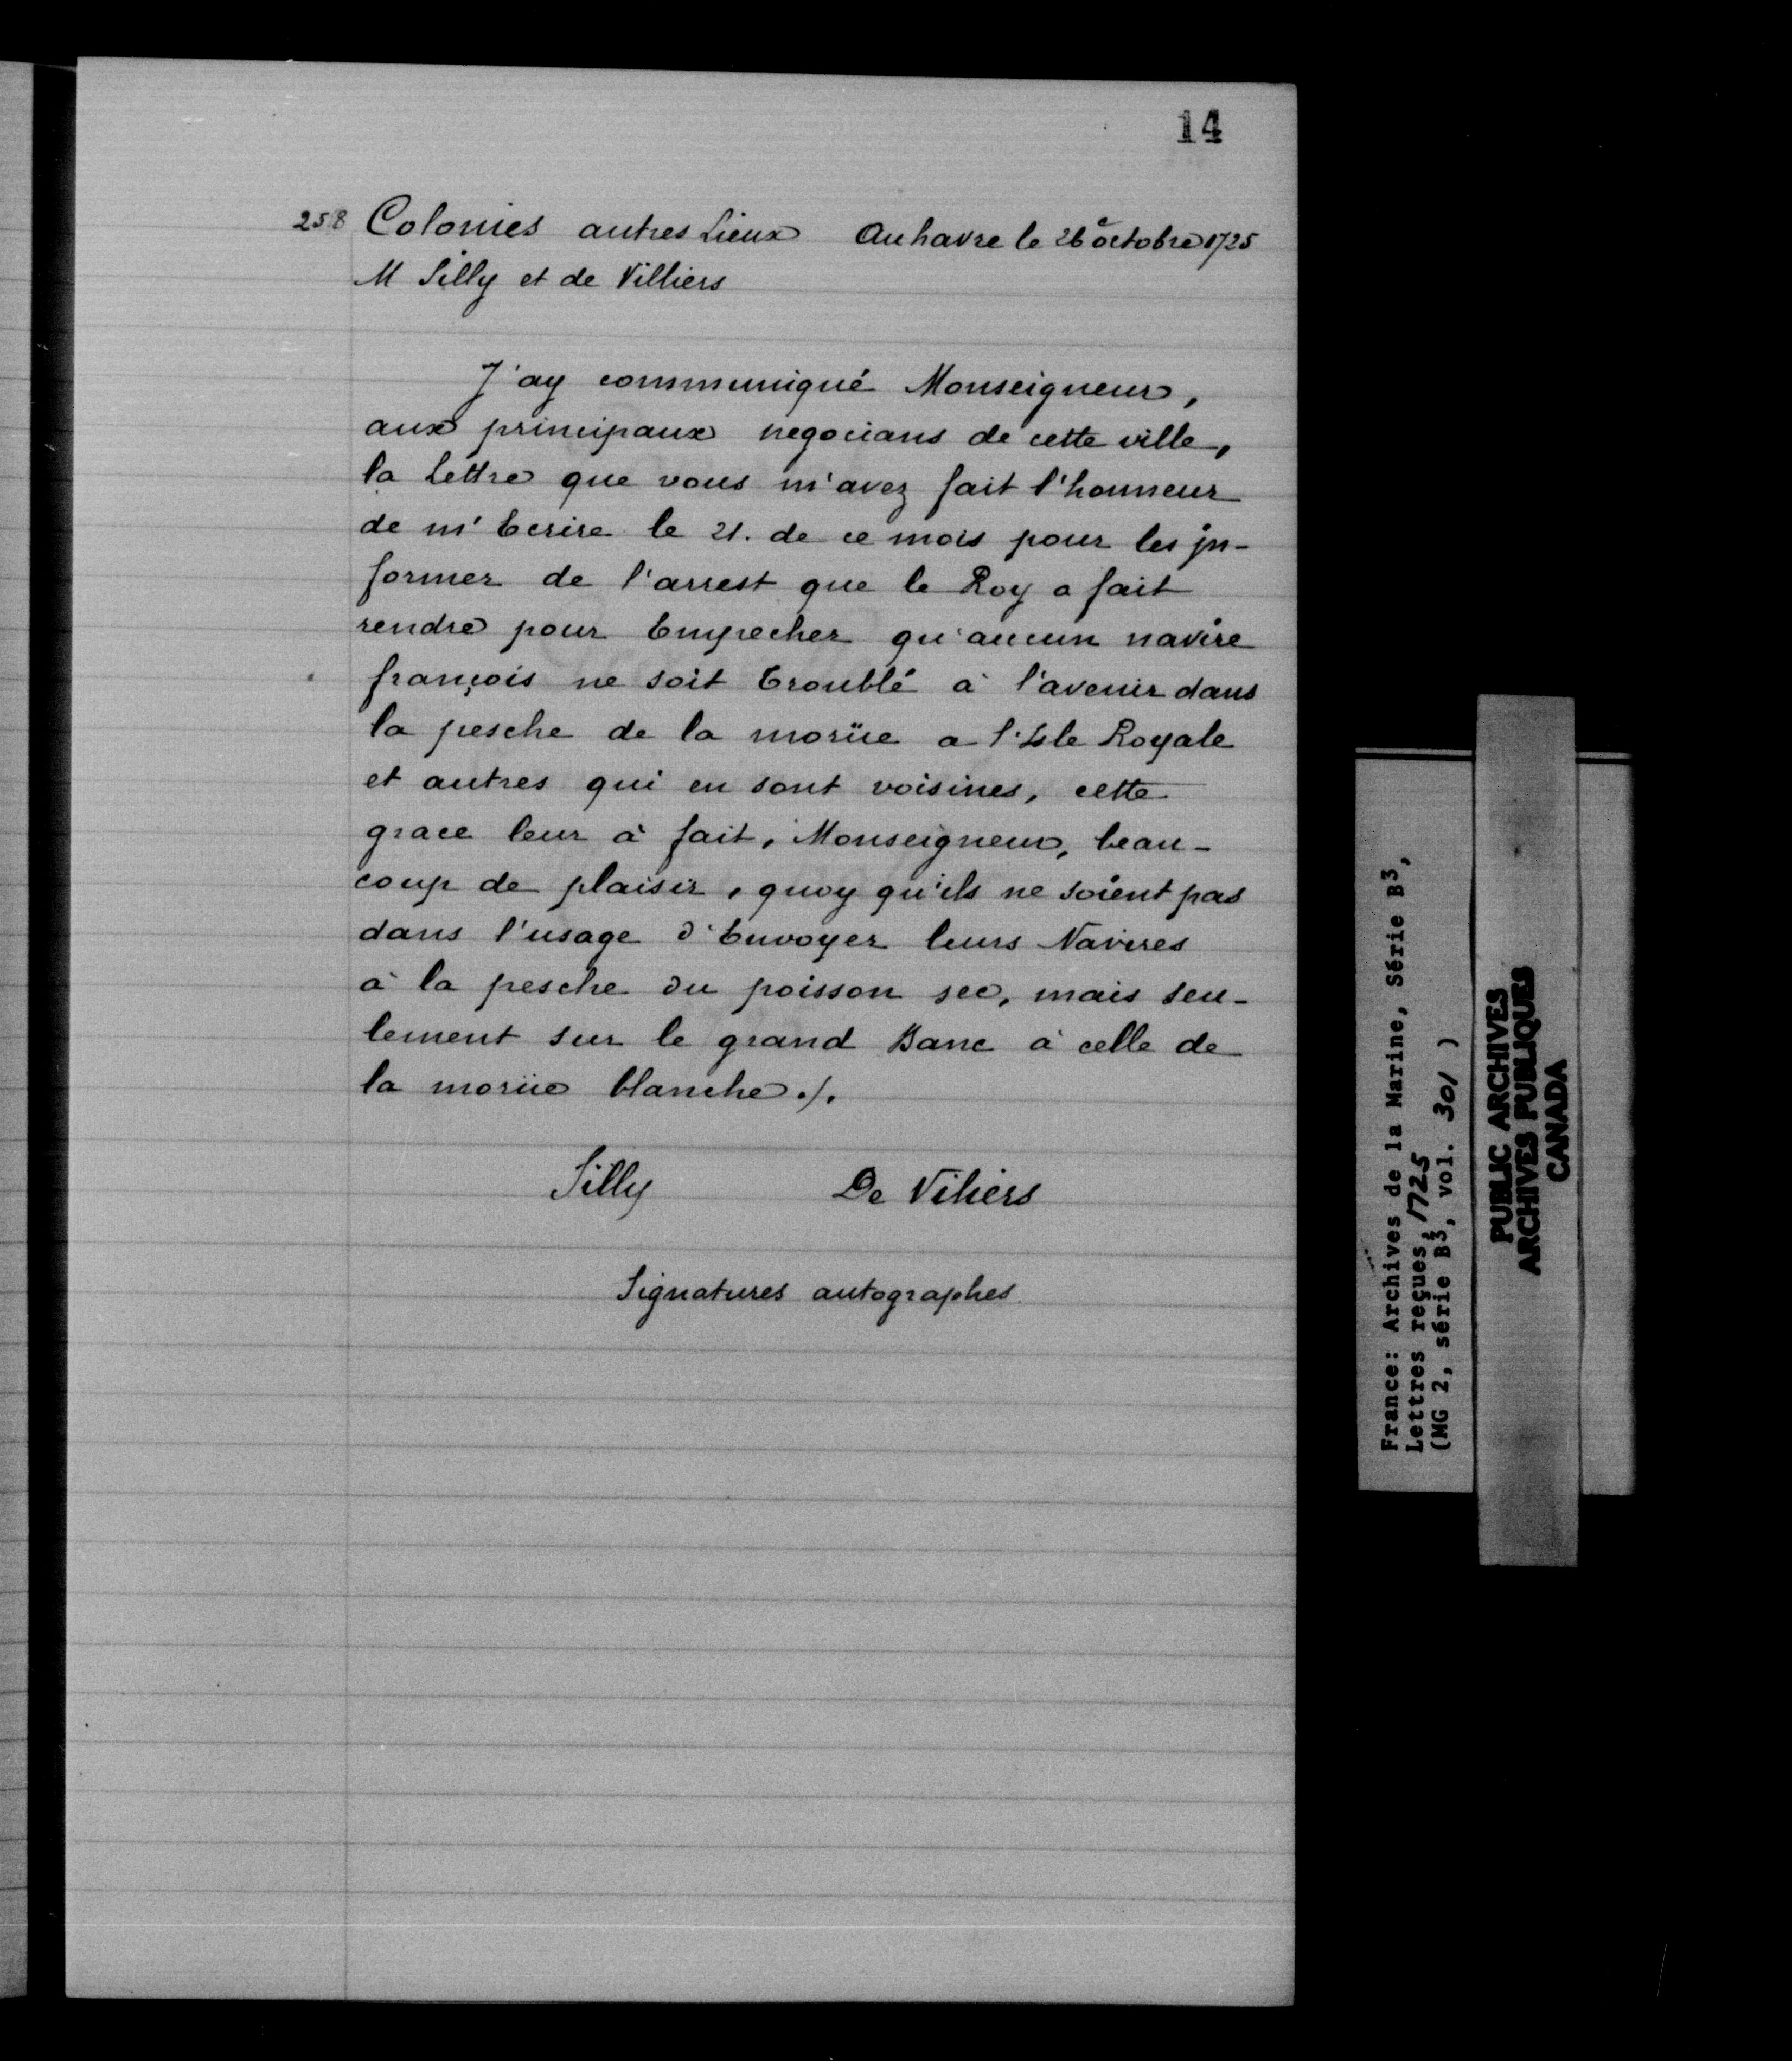 14
258 Colonies autres Lieux Au havre le 26 octobre 1725
M Silly et de Villiers
J'ay communiqué Monseigneur,
aux principaux negocians de cette ville,
la Lettre que vous m'avez fait l'honneur
de m'Ecrire le 21. de ce mois pour les jn-
former de l'arrest que le Roy a fait
rendre pour Empecher qu'aucun navire
françois ne soit troublé à l'avenir dans
la pesche de la morüe a l'Isle Royale
et autres qui en sont voisines, cette
grace leur à fait, Monseigneur, beau-
coup de plaisir, quoy qu'ils ne soient pas
dans l'usage d'Envoyer leurs Navires
à la pesche du poisson sec, mais seu-
lement sur le grand Banc à celle de
la morüe blanche ./.
Silly De Viliers
Signatures autographes
France: Archives de la Marine, Série B3,
Lettres reçues, 1725
(MG 2, série B3, vol. 301 )
PUBLIC ARCHIVES
ARCHIVES PUBLIQUES
CANADA